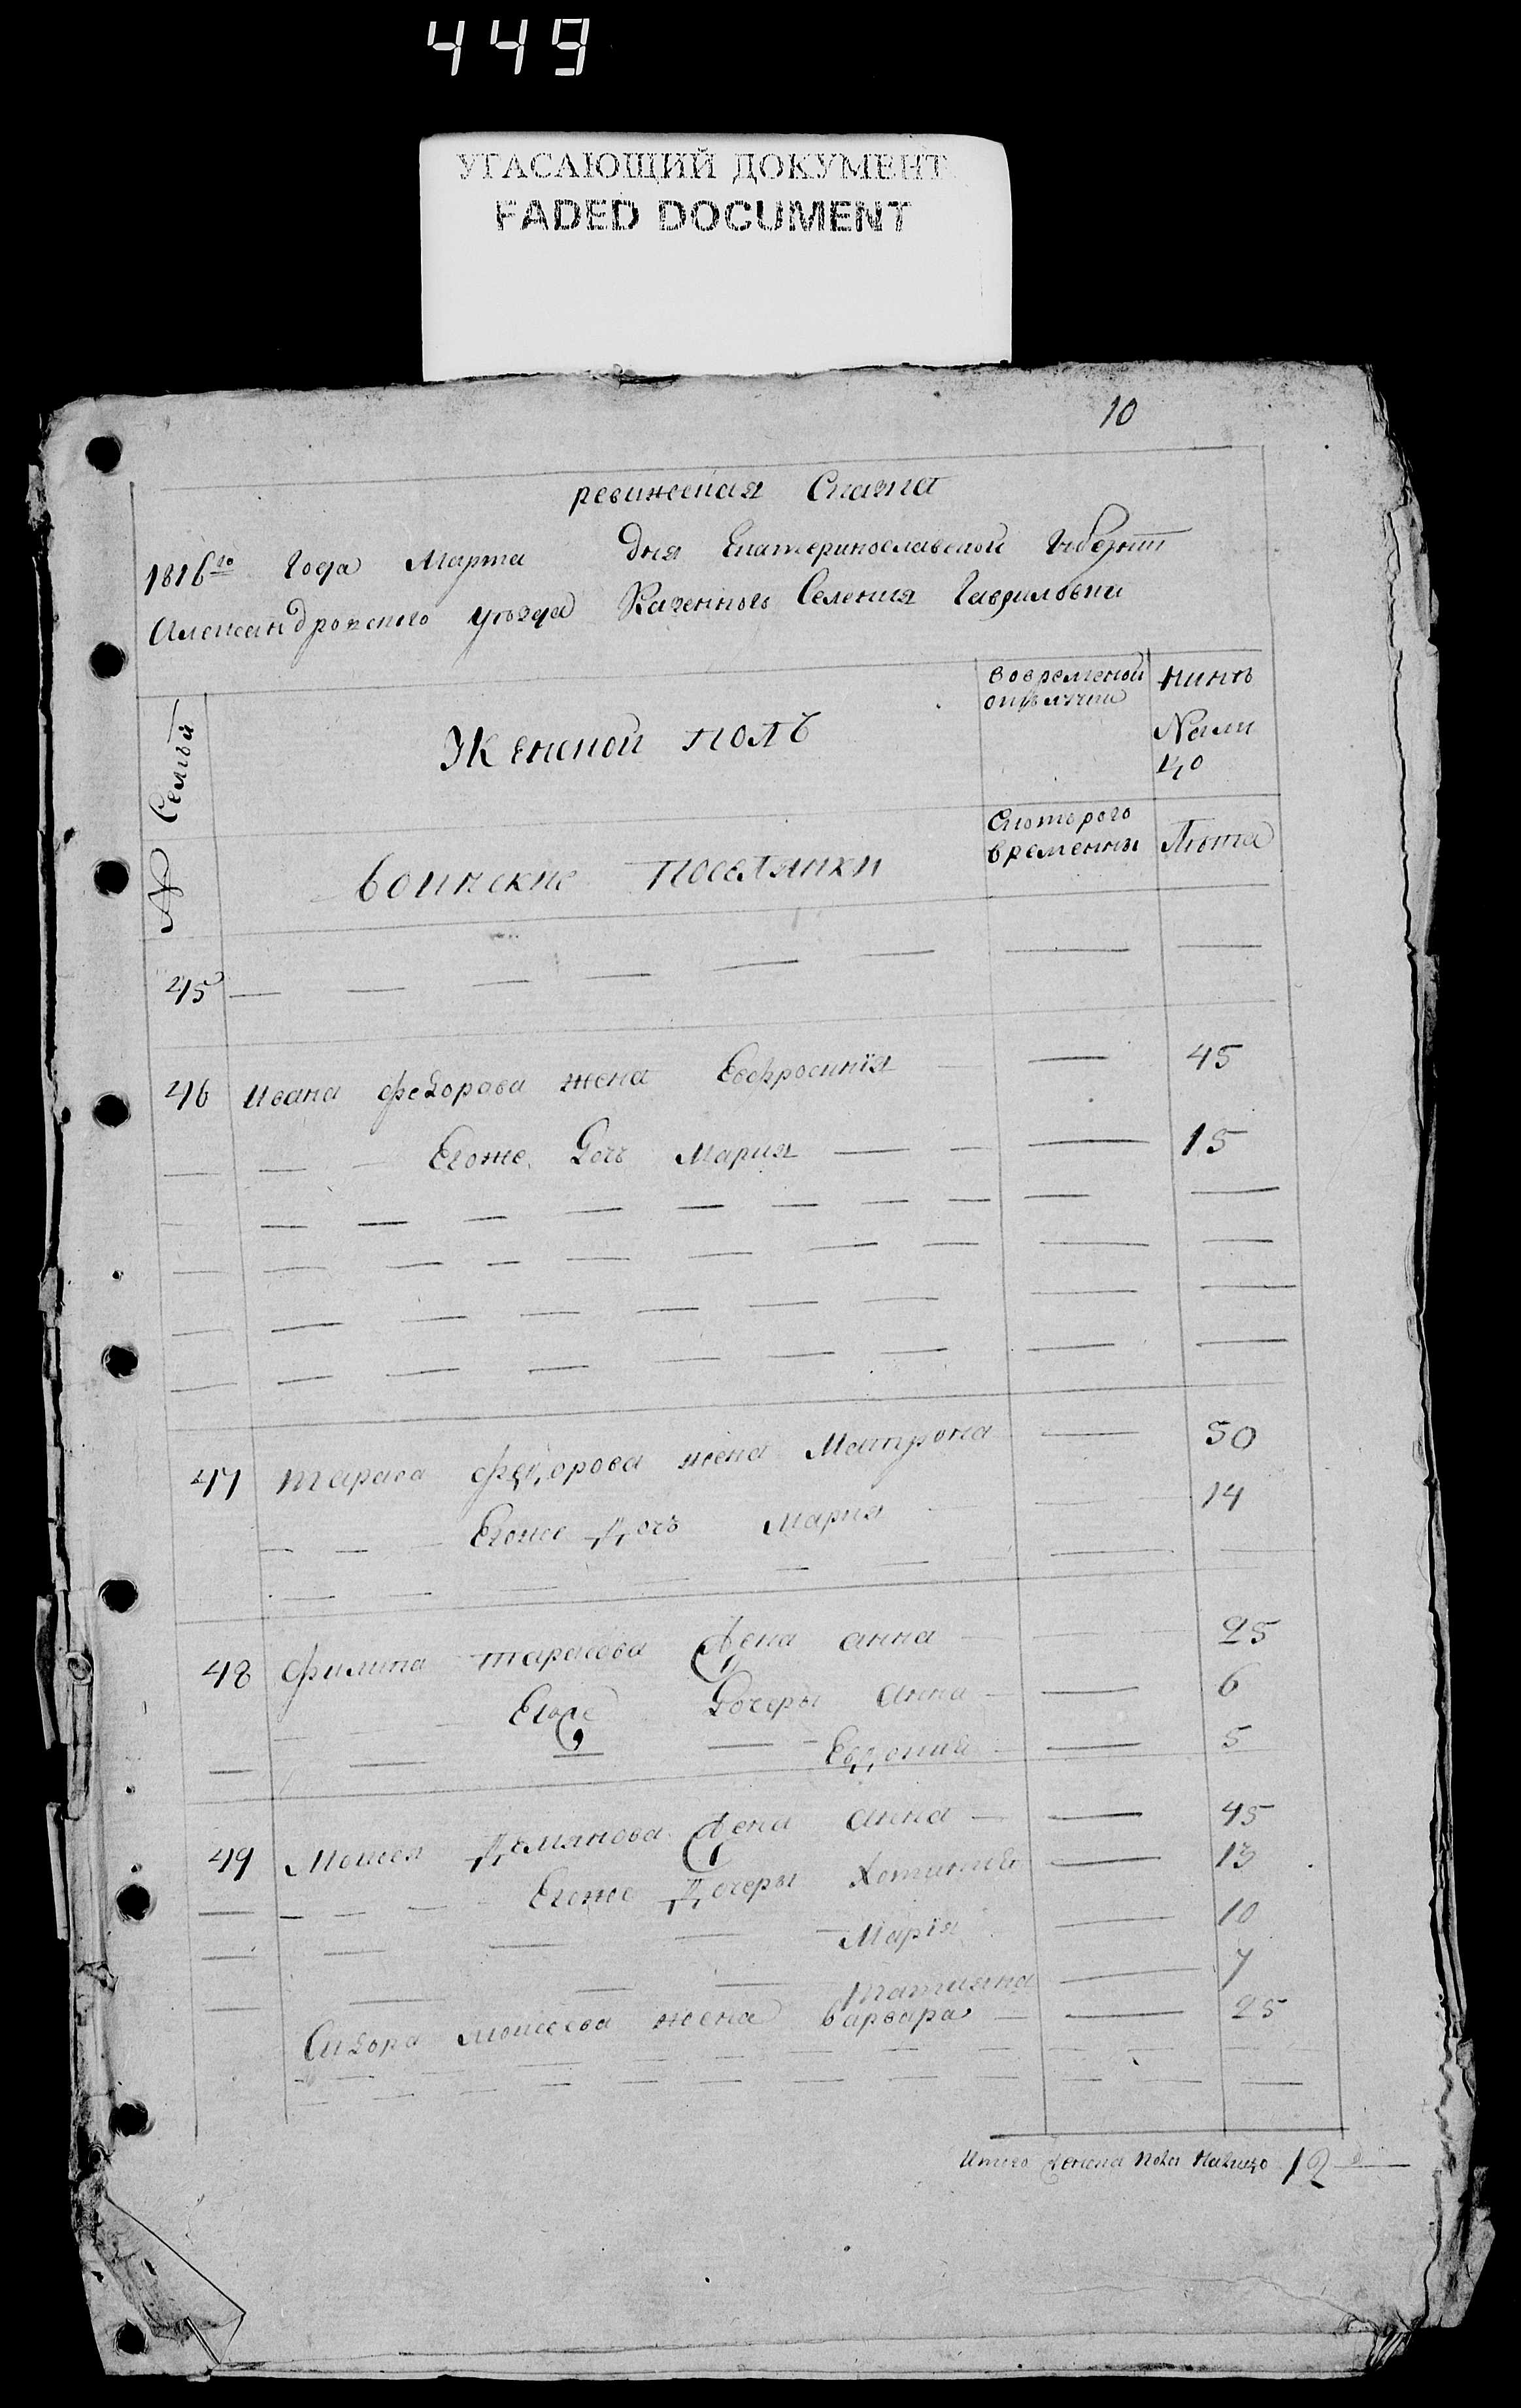 449
УГАСАЮЩИЙ ДОКУМЕНТ
FADED DOCUMENT
10
ревижская Сказка
1816го Года Марта дня Екатеринославской Губернии
Александровского уѣзда Казенного Селения Гавриловки
№ Семья
Женской полъ
вовременой отлучки
нинѣ Нали цо
воинские поселянки
Скоторого временны
Лѣта
45
46 Ивана федорова жена Евфросиния 45
Егоже Дочь Мария 15
47 тараса федорова жена Матрона 50
Егоже Дочь Мария 14
48 филипа тарасова жена анна 25
Егоже Дочеры анна 6
Евдокия 5
49 Моисея Демянова жена анна 45
Егоже Дочеры 13
Марія 10
татияна 7
Сидора моисеева жена варвара 25
Итого женска пола налицо 12